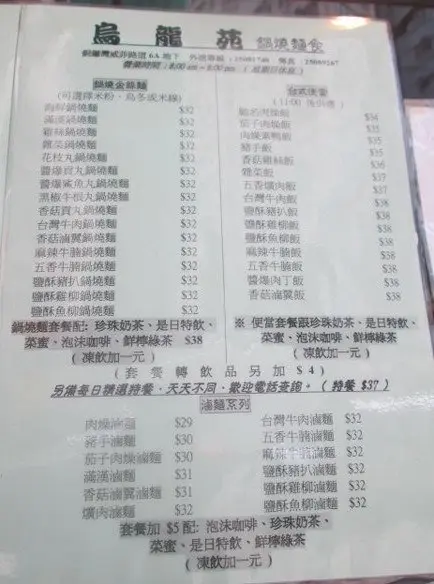 烏龍苑 鍋燒麵食
銅鑼灣威非路道 6A 地下 外送專線：25081740 傳真：25089267
營業時間：8:00 am – 8:00 pm （星期日休息）
鍋燒金絲麵
（可選擇米粉、烏冬或米線）
海鮮鍋燒麵 $32
滿漢鍋燒麵 $32
雞絲鍋燒麵 $32
雜菜鍋燒麵 $32
花枝丸鍋燒麵 $32
醬爆貢丸鍋燒麵 $32
醬爆鯊魚丸鍋燒麵 $32
黑椒牛根丸鍋燒麵 $32
香菇貢丸鍋燒麵 $32
台灣牛肉鍋燒麵 $32
香菇滷翼鍋燒麵 $32
麻辣牛腩鍋燒麵 $32
五香牛腩鍋燒麵 $32
鹽酥豬扒鍋燒麵 $32
鹽酥雞柳鍋燒麵 $32
鹽酥魚柳鍋燒麵 $32
鍋燒麵套餐配: 珍珠奶茶、是日特飲、
菜蜜、泡沫咖啡、鮮檸綠茶 $38
( 凍飲加一元 )
台式便當
(11:00 後供應)
馳名肉燥飯 $34
茄子肉燥飯 $35
肉燥菜鴨飯 $35
豬手飯 $35
香菇雞絲飯 $36
雜菜飯 $37
五香爌肉飯 $37
台灣牛肉飯 $38
鹽酥豬扒飯 $38
鹽酥雞柳飯 $38
鹽酥魚柳飯 $38
麻辣牛腩飯 $38
五香牛腩飯 $38
醬爆肉丁飯 $38
香菇滷翼飯 $38
※ 便當套餐跟珍珠奶茶、是日特飲、
菜蜜、泡沫咖啡、鮮檸綠茶
( 凍飲加一元 )
( 套餐轉飲品另加 $4 )
另備每日精選特餐，天天不同，歡迎電話查詢。( 特餐 $37 )
滷麵系列
肉燥滷麵 $29
豬手滷麵 $30
茄子肉燥滷麵 $30
滿漢滷麵 $31
香菇滷翼滷麵 $31
爌肉滷麵 $32
台灣牛肉滷麵 $32
五香牛腩滷麵 $32
麻辣牛腩滷麵 $32
鹽酥豬扒滷麵 $32
鹽酥雞柳滷麵 $32
鹽酥魚柳滷麵 $32
套餐加 $5 配: 泡沫咖啡、珍珠奶茶、
菜蜜、是日特飲、鮮檸綠茶
( 凍飲加一元 )